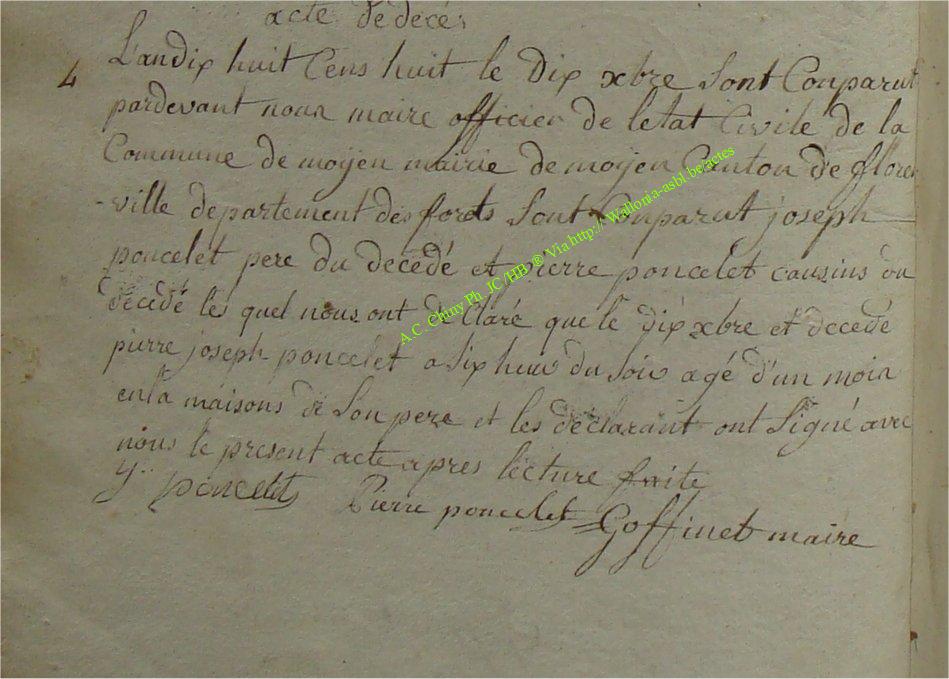 acte de decé
4 L'an dix huit Cens huit le dix xbre sont Conparut
pardevant nous maire officier de letat Civile de la
Commune de moyen mairie de moyen Canton de floren
-ville departement des forêts sont Conparut joseph
poncelet pere du decedé et pierre poncelet cousins du
decedé les quel nous ont déClaré que le dix xbre et decedé
pierre joseph poncelet a six heur du soir agé d'un mois
en la maisons de son pere et les déclarant ont signé avec
nous le present acte apres lécture faite
y.. poncelet Pierre poncelet Goffinet maire
A.C. Chiny Ph. JC/HB ® Via http://Wallonia-asbl.be/actes